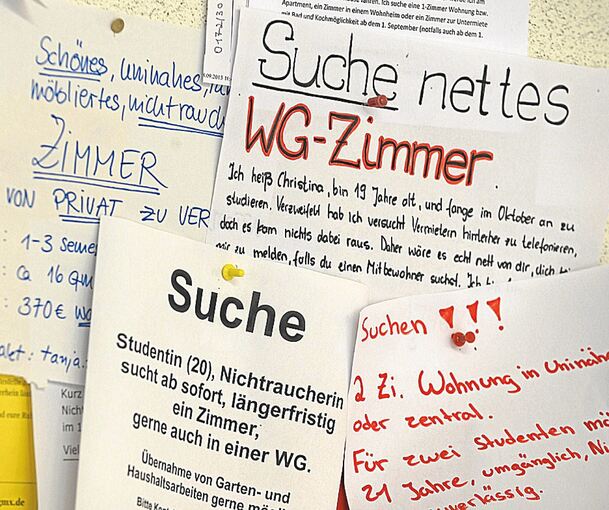 Apartment, ein Zimmer in einem Wohnheim oder ein Zimmer zur Untermiete
mit Bad und Kochmöglichkeit ab dem 1. September (notfalls auch ab dem 1.
0172/30
Schönes, uninahes,
möbliertes, nichtrauch
ZIMMER
VON PRIVAT ZU VER
: 1-3 Seme
: ca 16 qm
: 370€
tanja.
Suche nettes
WG-Zimmer
Ich heiß Christina, bin 19 Jahre alt, und fange im Oktober an zu
studieren. Verzweifelt hab ich versucht Vermietern hinterher zu telefonieren,
doch es kam nichts dabei raus. Daher wäre es echt nett von dir, dich bei
mir zu melden, falls du einen Mitbewohner suchst. Ich
Suche
Studentin (20), Nichtraucherin
sucht ab sofort, längerfristig
ein Zimmer,
gerne auch in einer WG.
Übernahme von Garten- und
Haushaltsarbeiten gerne
Bitte
Suchen !!!
2 Zi. Wohnung in uninähe
oder zentral.
Für zwei Studenten
21 Jahre, umgänglich, Ni
verlässig.
Kurz
Nicht
im 1
Viel
gmx.de